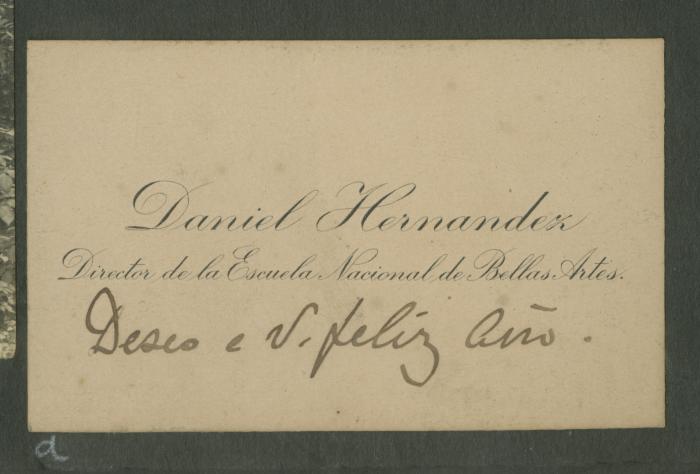 Daniel Hernandez
Director de la Escuela Nacional de Bellas Artes.
Deseo a V. feliz Año.
d